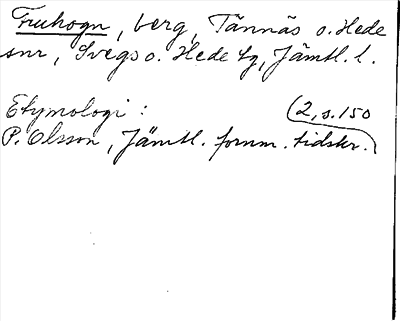 Fruhogn, berg, Tännäs o. Hede
snr, Svegs o. Hede tg, Jämtl. l.
Etymologi:
(2, s. 150
P. Olsson, Jämtl. fornm. tidskr.